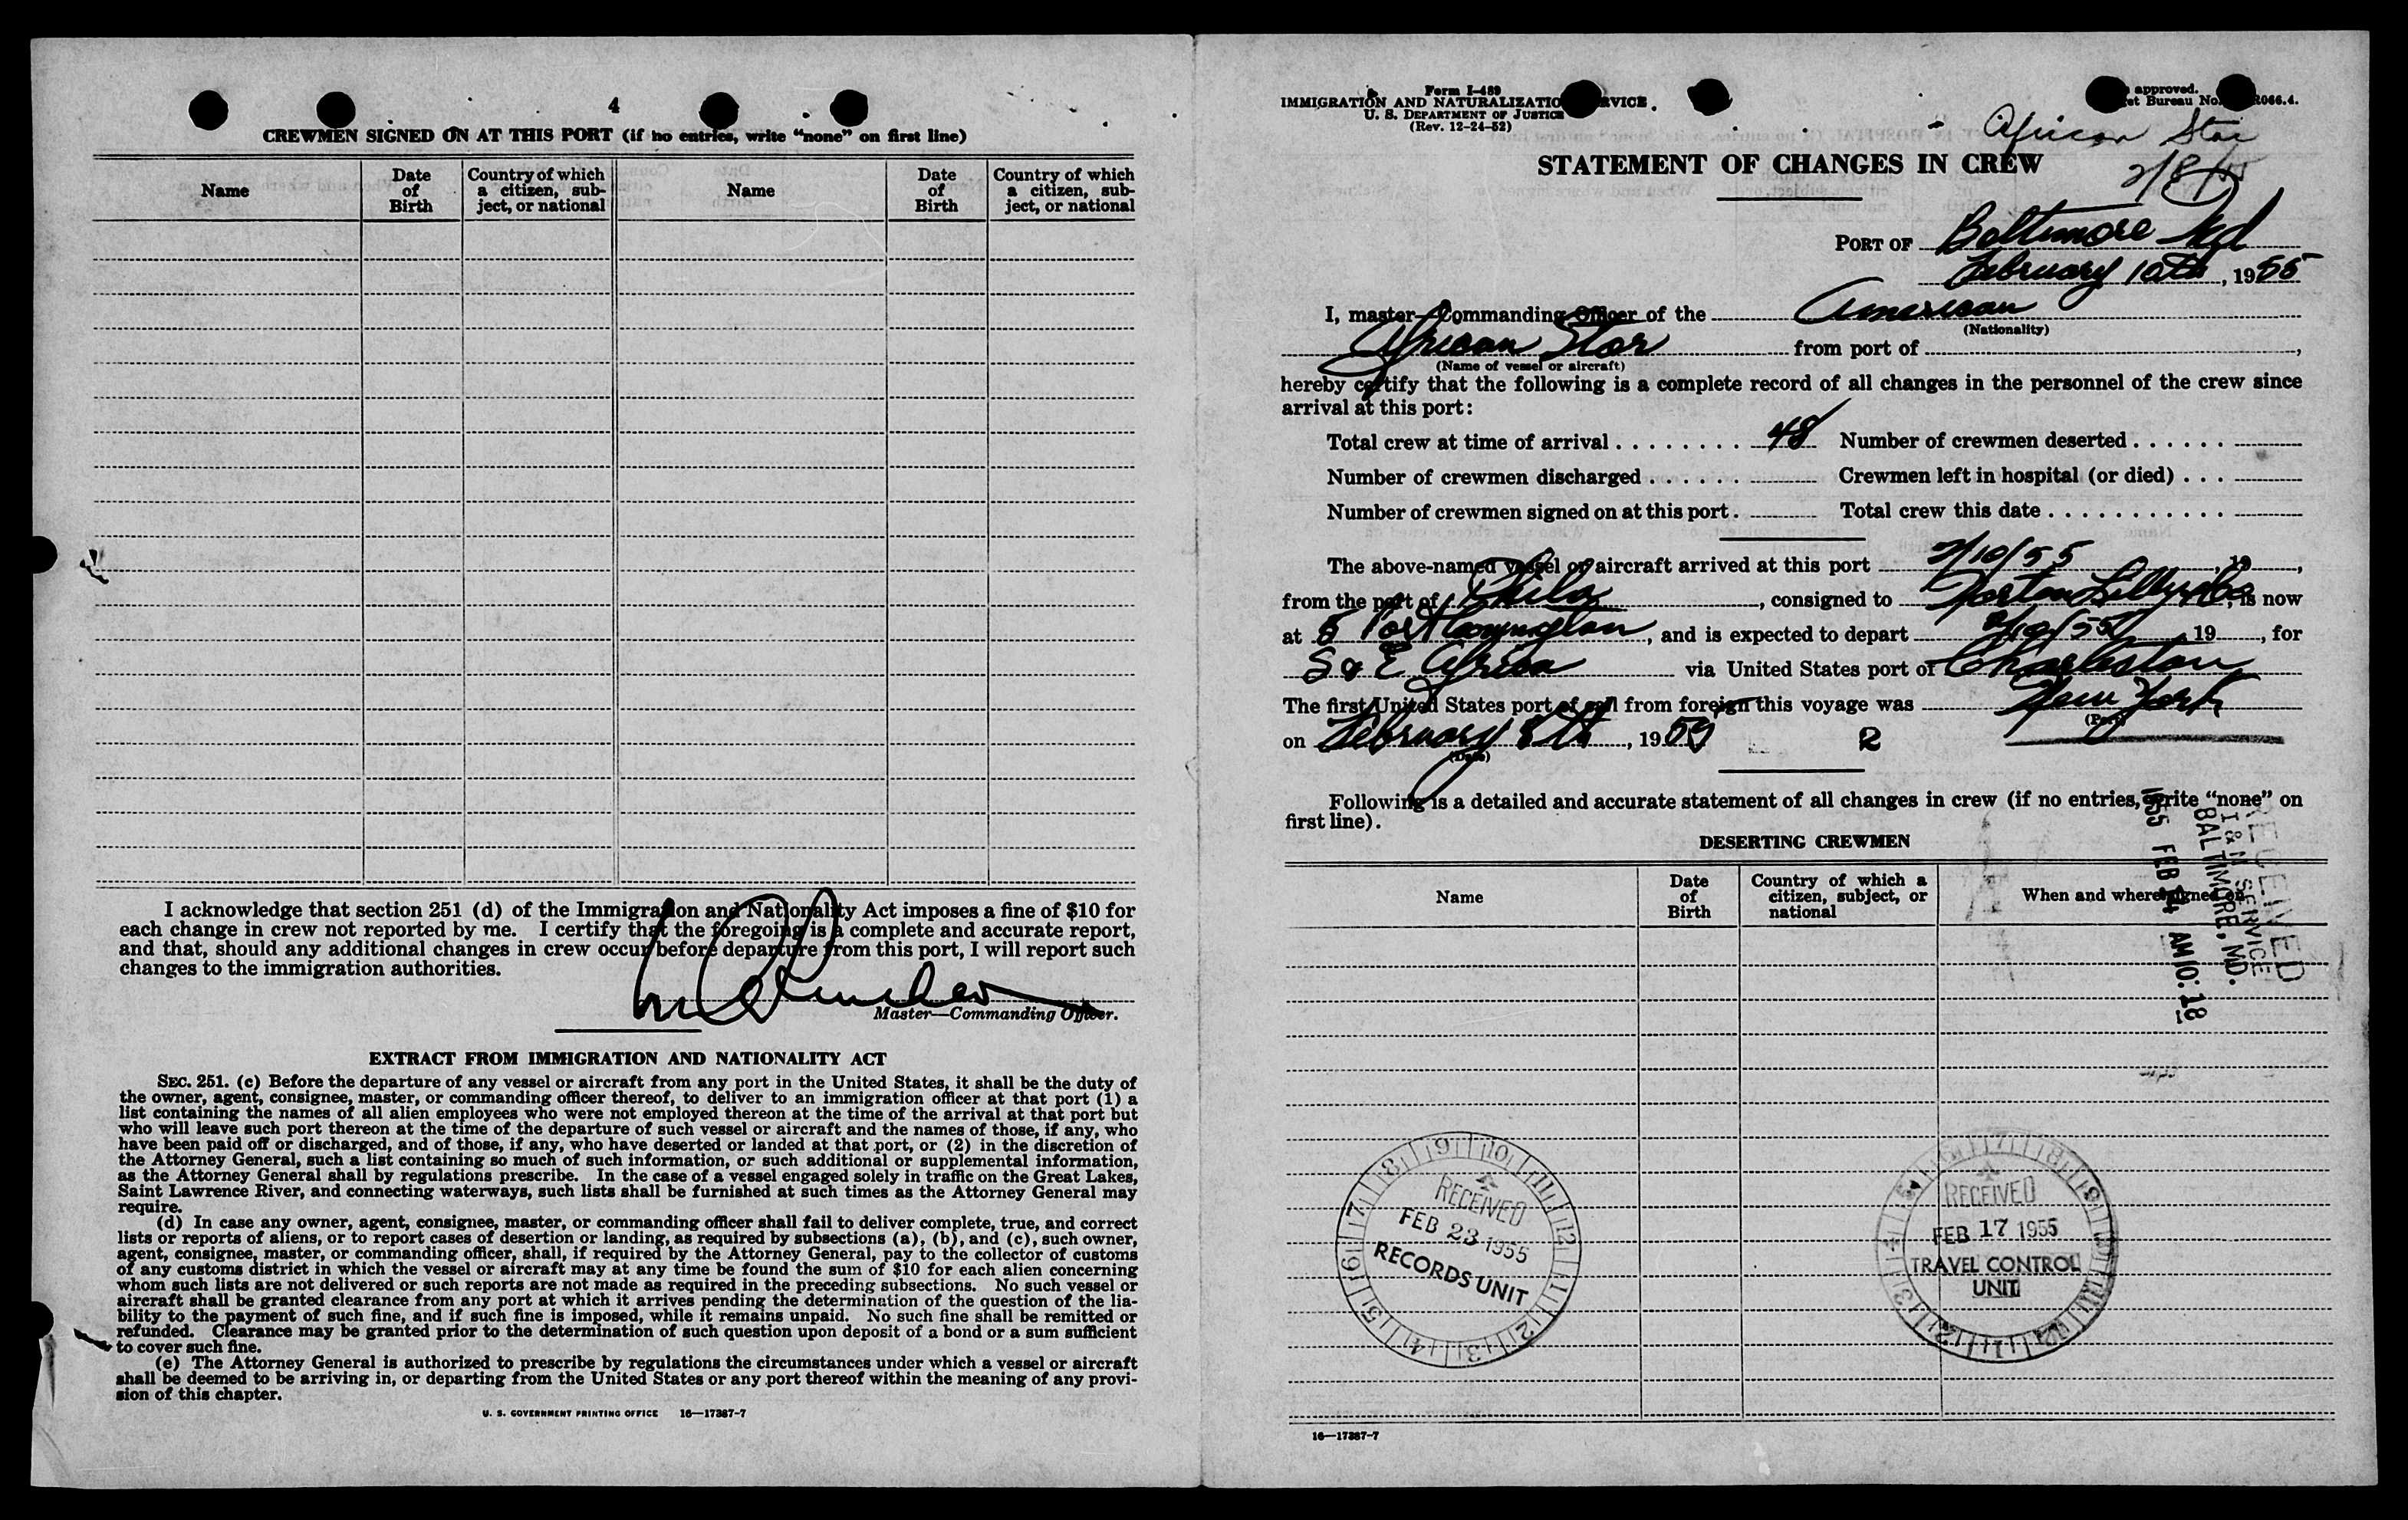 4
CREWMEN SIGNED ON AT THIS PORT (if no entries, write "none" on first line)
Name
Date of Birth
Country of which a citizen, subject, or national
Name
Date of Birth
Country of which a citizen, subject, or national
I acknowledge that section 251 (d) of the Immigration and Nationality Act imposes a fine of $10 for
each change in crew not reported by me. I certify that the foregoing is a complete and accurate report,
and that, should any additional changes in crew occur before departure from this port, I will report such
changes to the immigration authorities.
Master—Commanding Officer.
EXTRACT FROM IMMIGRATION AND NATIONALITY ACT
SEC. 251. (c) Before the departure of any vessel or aircraft from any port in the United States, it shall be the duty of
the owner, agent, consignee, master, or commanding officer thereof, to deliver to an immigration officer at that port (1) a
list containing the names of all alien employees who were not employed thereon at the time of the arrival at that port but
who will leave such port thereon at the time of the departure of such vessel or aircraft and the names of those, if any, who
have been paid off or discharged, and of those, if any, who have deserted or landed at that port, or (2) in the discretion of
the Attorney General, such a list containing so much of such information, or such additional or supplemental information,
as the Attorney General shall by regulations prescribe. In the case of a vessel engaged solely in traffic on the Great Lakes,
Saint Lawrence River, and connecting waterways, such lists shall be furnished at such times as the Attorney General may
require.
(d) In case any owner, agent, consignee, master, or commanding officer shall fail to deliver complete, true, and correct
lists or reports of aliens, or to report cases of desertion or landing, as required by subsections (a), (b), and (c), such owner,
agent, consignee, master, or commanding officer, shall, if required by the Attorney General, pay to the collector of customs
of any customs district in which the vessel or aircraft may at any time be found the sum of $10 for each alien concerning
whom such lists are not delivered or such reports are not made as required in the preceding subsections. No such vessel or
aircraft shall be granted clearance from any port at which it arrives pending the determination of the question of the lia-
bility to the payment of such fine, and if such fine is imposed, while it remains unpaid. No such fine shall be remitted or
refunded. Clearance may be granted prior to the determination of such question upon deposit of a bond or a sum sufficient
to cover such fine.
(e) The Attorney General is authorized to prescribe by regulations the circumstances under which a vessel or aircraft
shall be deemed to be arriving in, or departing from the United States or any port thereof within the meaning of any provi-
sion of this chapter.
U. S. GOVERNMENT PRINTING OFFICE 16—17387-7
Form I-489
IMMIGRATION AND NATURALIZATIO RVICE
U. S. DEPARTMENT OF JUSTICE
(Rev. 12-24-52)
approved.
et Bureau No. R066.4.
African Star
STATEMENT OF CHANGES IN CREW
2/8/
PORT OF Baltimore Md
February 10th, 1955
I, master—Commanding Officer of the American
(Nationality)
African Star from port of ,
(Name of vessel or aircraft)
hereby certify that the following is a complete record of all changes in the personnel of the crew since
arrival at this port:
Total crew at time of arrival . . . . . . . . 48 Number of crewmen deserted . . . . . .
Number of crewmen discharged . . . . . . Crewmen left in hospital (or died) . . .
Number of crewmen signed on at this port . Total crew this date . . . . . . . . . . .
The above-named vessel or aircraft arrived at this port 2/10/55, 19 ,
from the port of Phila, consigned to Norton Lilly & Co, is now
at 5 Port Covington, and is expected to depart 2/10/55, 19 , for
S & E Africa via United States port of Charleston
The first United States port of call from foreign this voyage was New York
(Port)
on February 8th, 1955 R
(Date)
Following is a detailed and accurate statement of all changes in crew (if no entries, write "none" on
first line).
DESERTING CREWMEN
Name
Date of Birth
Country of which a citizen, subject, or national
When and where signed on
RECEIVED
I & N SERVICE
BALTIMORE, MD.
1955 FEB 14 AM 10:18
RECEIVED
FEB 23 1955
RECORDS UNIT
RECEIVED
FEB 17 1955
TRAVEL CONTROL
UNIT
16—17387-7